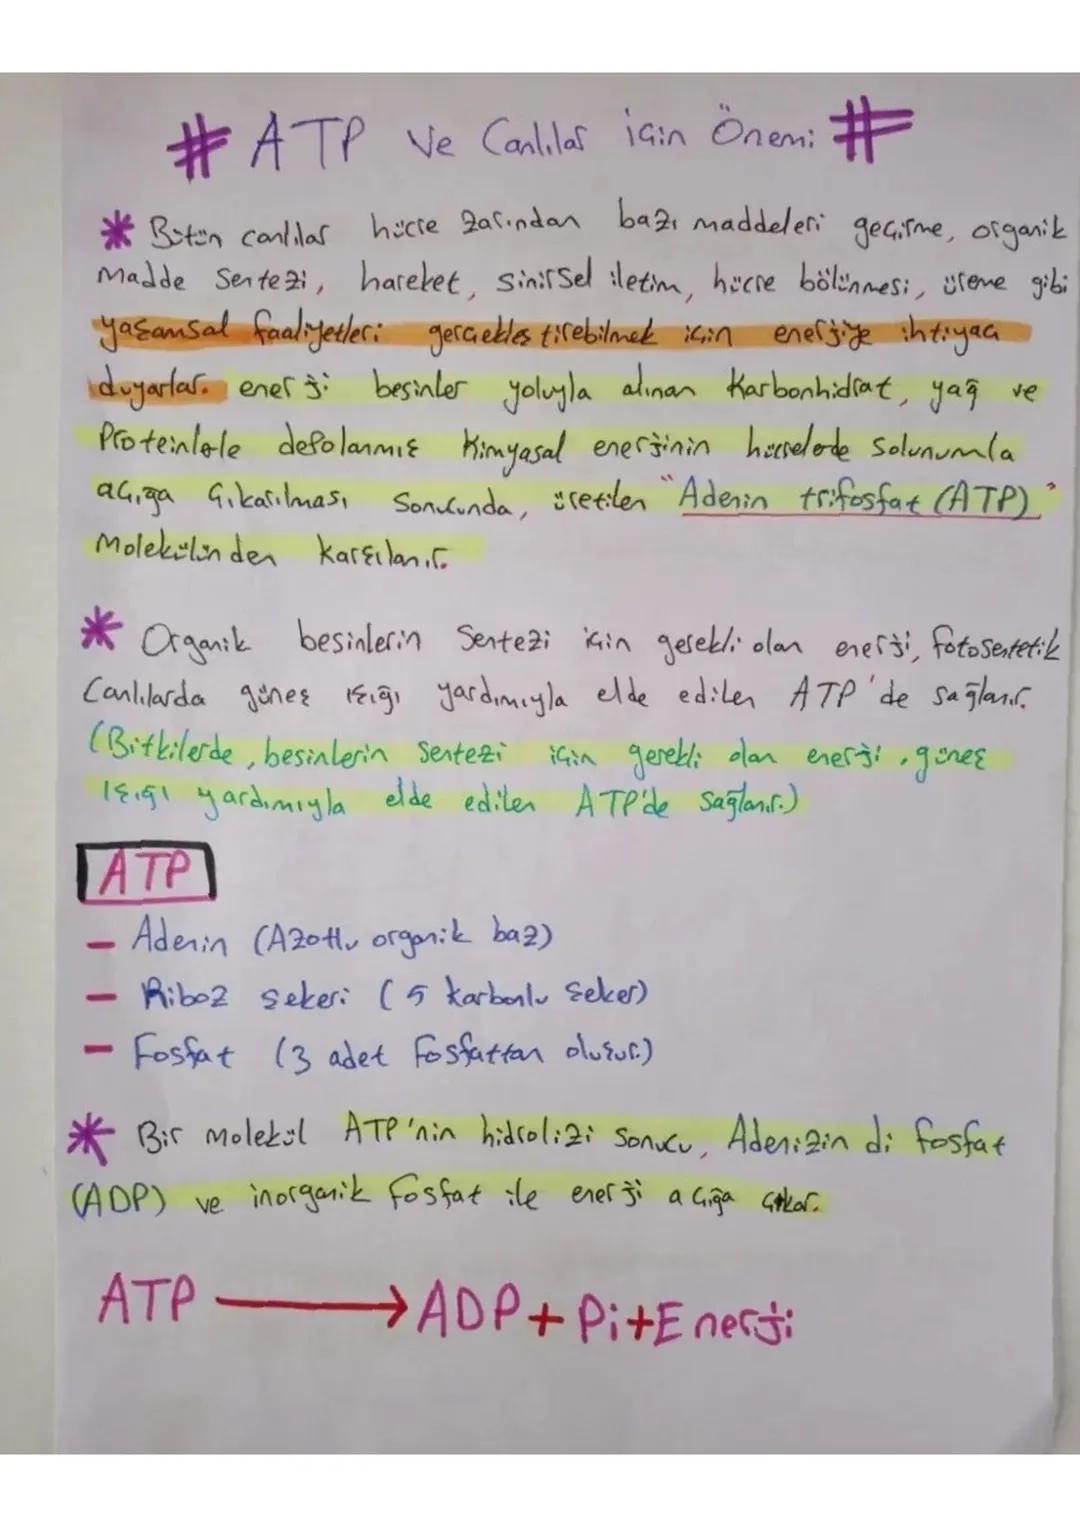 # ATP ve Canlılar için Önemi #
* Bütün canlılar hücre zarından bazı maddeleri geçirme, organik
madde sentezi, hareket, sinirsel iletim, hücre bölünmesi, üreme gibi
yaşamsal faaliyetleri gerçekleştirebilmek için enerjiye ihtiyacı
duyarlar. enerji besinler yoluyla alınan karbonhidrat, yağ ve
Proteinlerle depolanmış kimyasal enerjinin hücrelerde solunumla
açığa çıkarılması sonucunda, üretilen "Adenin trifosfat (ATP)"
Molekülünden karşılanır.
* Organik besinlerin sentezi için gerekli olan enerji, fotosentetik
Canlılarda güneş ışığı yardımıyla elde edilen ATP'de sağlanır.
(Bitkilerde, besinlerin sentezi için gerekli olan enerji, güneş
ışığı yardımıyla elde edilen ATP'de sağlanır.)
ATP
- Adenin (Azotlu organik baz)
- Riboz şekeri (5 karbonlu şeker)
- Fosfat (3 adet fosfattan oluşur.)
* Bir molekül ATP'nin hidrolizi sonucu, Adenizin di fosfat
(ADP) ve inorganik fosfat ile enerji açığa çıkar.
ATP → ADP + Pi + Enerji